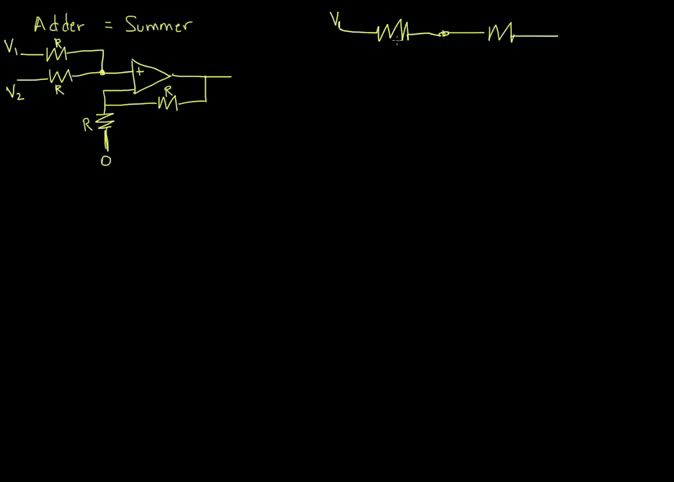 Adder = Summer
V1
R
V2
R
+
R
R
0
V1